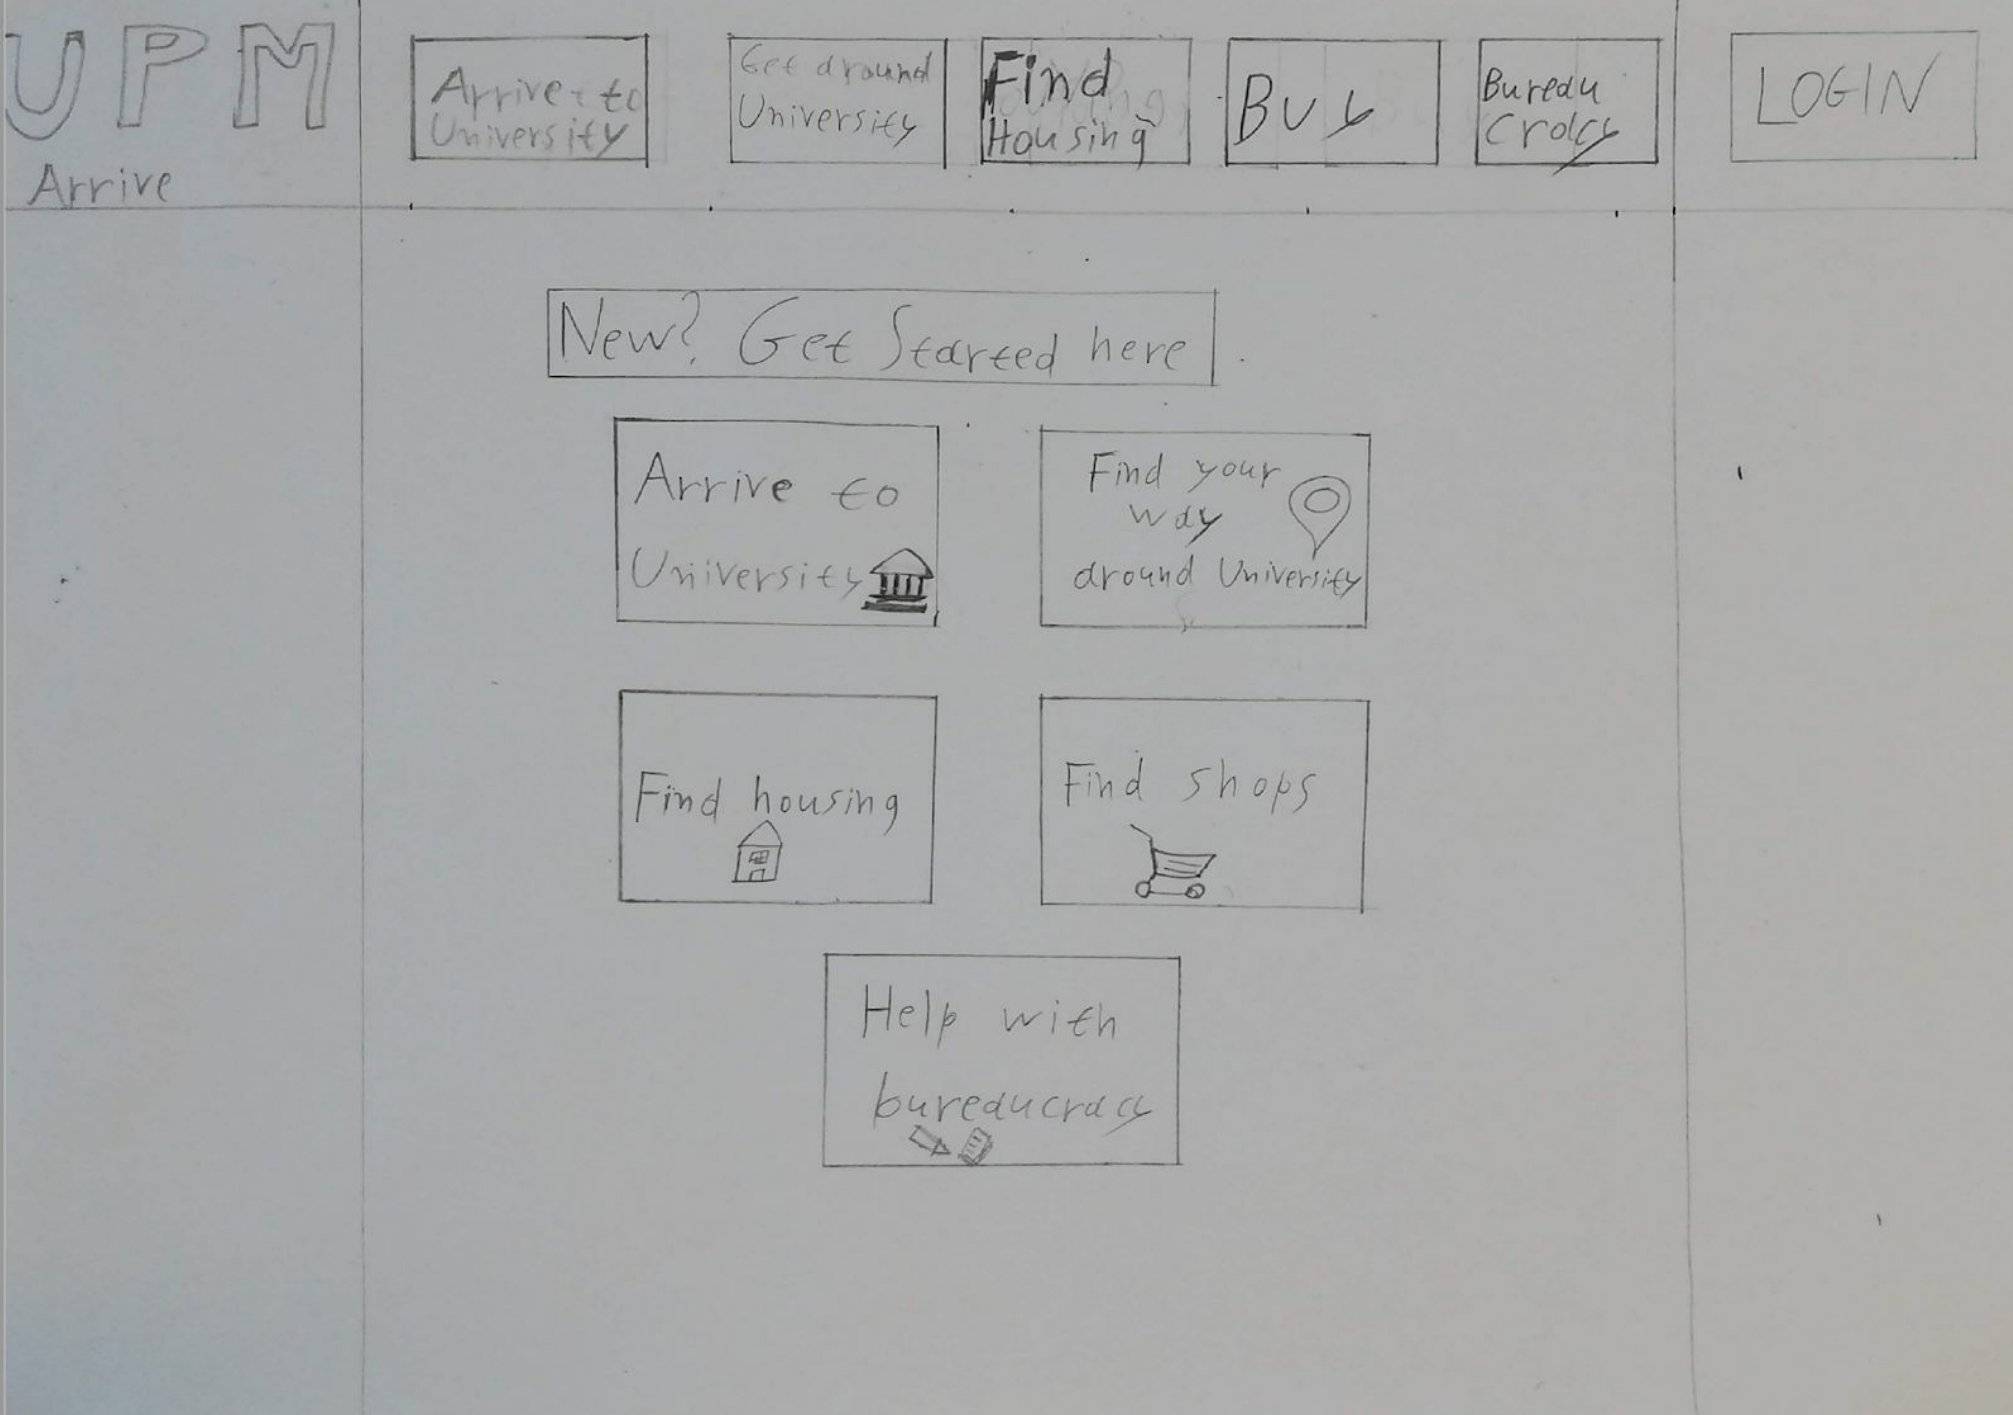 UPM
Arrive
Arrive to
University
Get around
University
Find
Housing
Buy
Bureau
Cracy
LOGIN
New? Get Started here
Arrive to
University
Find your
way
around University
Find housing
Find shops
Help with
bureaucracy